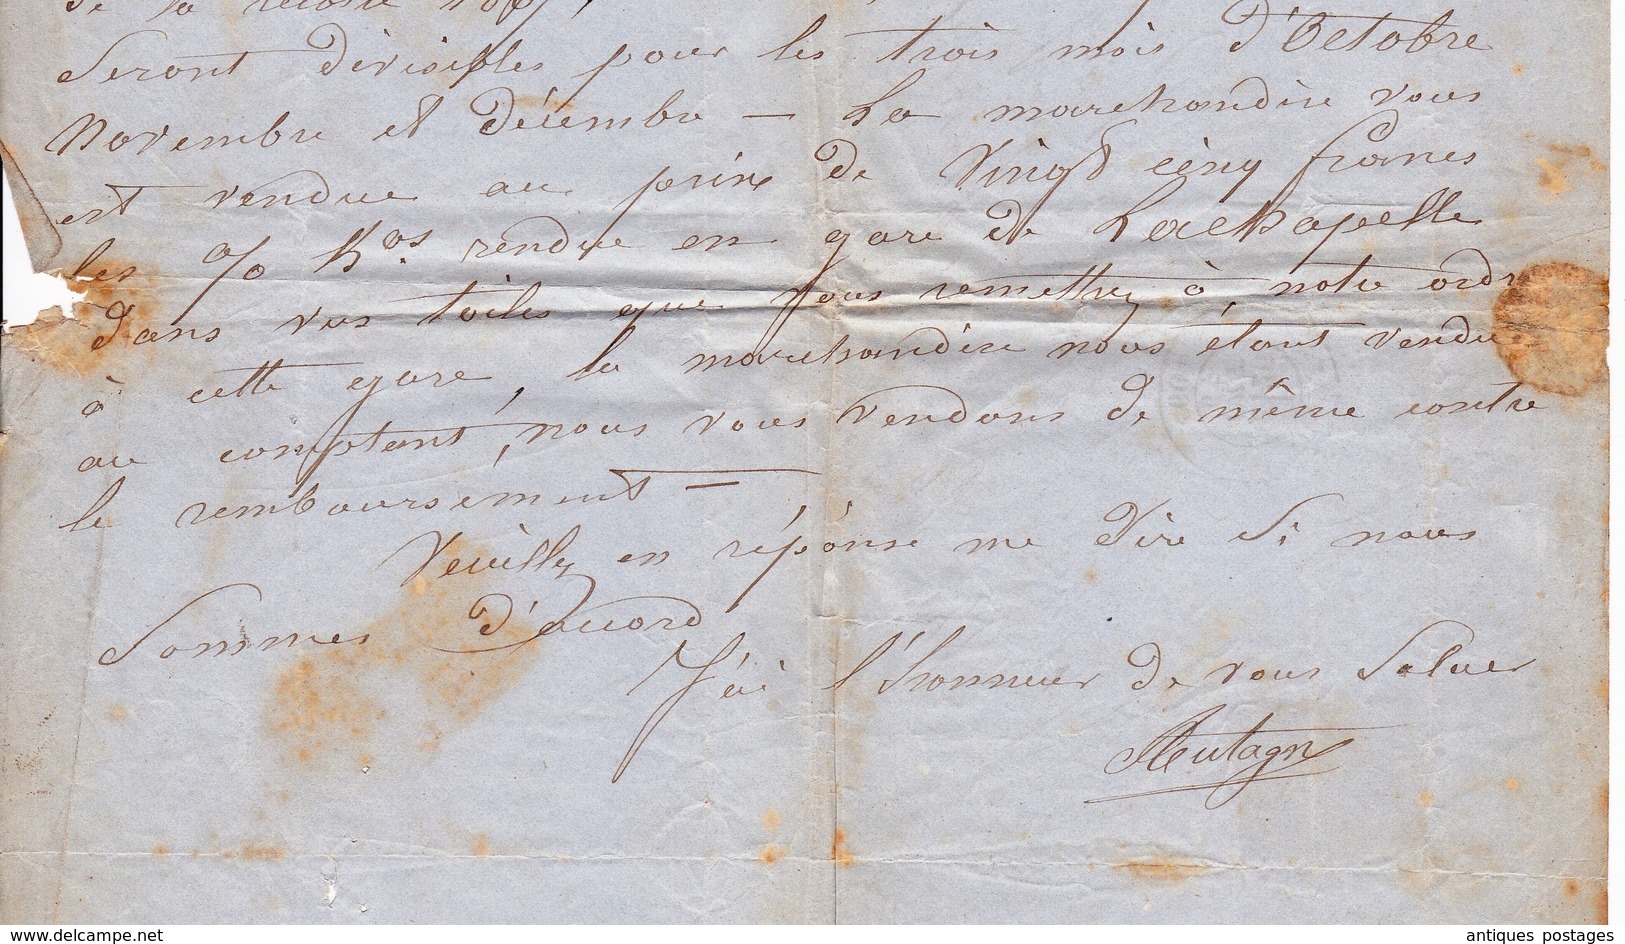 de la récolte
Seront divisibles pour les trois mois d'Octobre
Novembre et décembre — La marchandise vous
est vendue au prix de Vingt cinq francs
les % Kos rendue en gare de Lachapelle
dans vos toiles que vous remettrez à notre ordre
à cette gare, la marchandise nous étant vendue
au comptant, nous vous vendons de même contre
le remboursement —
Veuillez en réponse me dire Si nous
Sommes d'accord
J'ai l'honneur de vous Saluer
www.delcampe.net
antiques postages